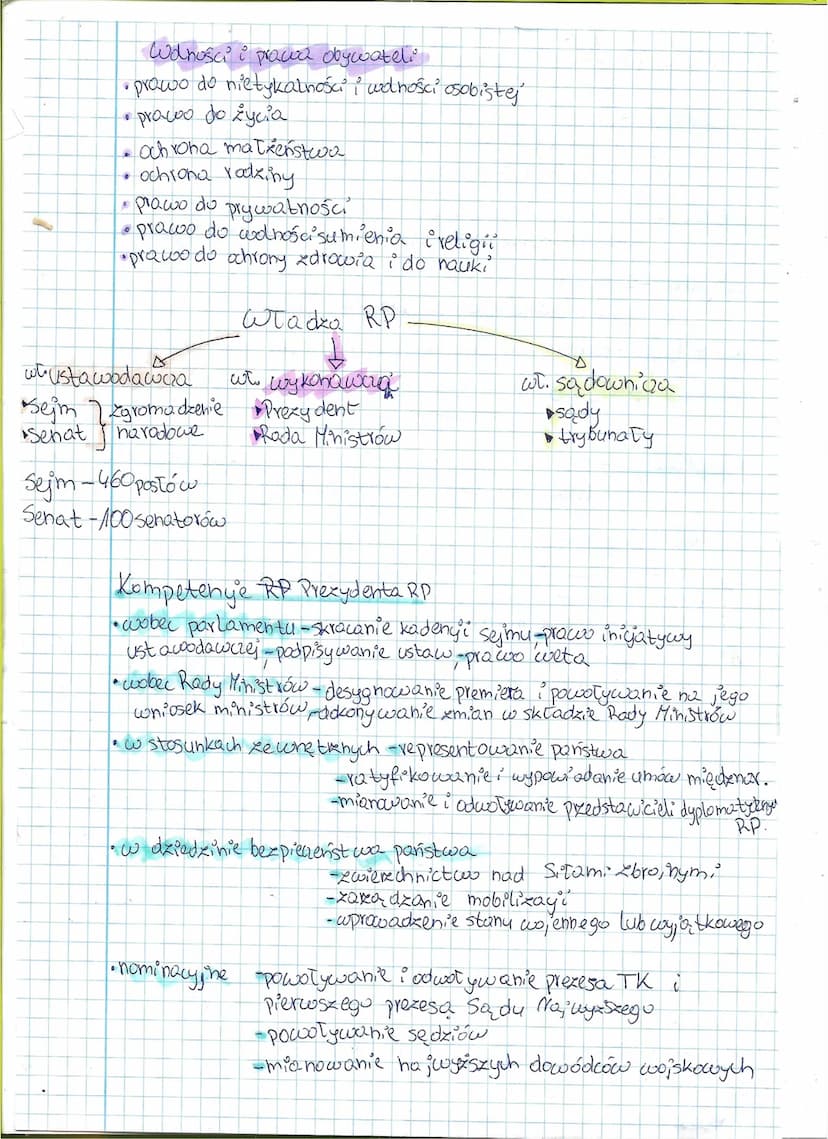 Wolności i prawa obywateli
• prawo do nietykalności i wolności osobistej
• prawo do życia
• ochrona małżeństwa
• ochrona rodziny
• prawo do prywatności
• prawo do wolności sumienia i religii
• prawo do ochrony zdrowia i do nauki
Władza RP
wł. ustawodawcza wł. wykonawcza wł. sądownicza
Sejm } zgromadzenie Prezydent sądy
senat } narodowe Rada Ministrów trybunały
Sejm – 460 posłów
Senat – 100 senatorów
Kompetencje RP Prezydenta RP
• wobec parlamentu – skracanie kadencji sejmu, – prawo inicjatywy
ustawodawczej, – podpisywanie ustaw, – prawo weta
• wobec Rady Ministrów – desygnowanie premiera i powoływanie na jego
wniosek ministrów, – dokonywanie zmian w składzie Rady Ministrów
• w stosunkach zewnętrznych – reprezentowanie państwa
– ratyfikowanie i wypowiadanie umów międzynar.
– mianowanie i odwoływanie przedstawicieli dyplomatycznych
RP.
• w dziedzinie bezpieczeństwa państwa
– zwierzchnictwo nad Siłami zbrojnymi
– zarządzanie mobilizacji
– wprowadzenie stanu wojennego lub wyjątkowego
• nominacyjne – powoływanie i odwoływanie prezesa TK i
pierwszego prezesa Sądu Najwyższego
– powoływanie sędziów
– mianowanie najwyższych dowódców wojskowych